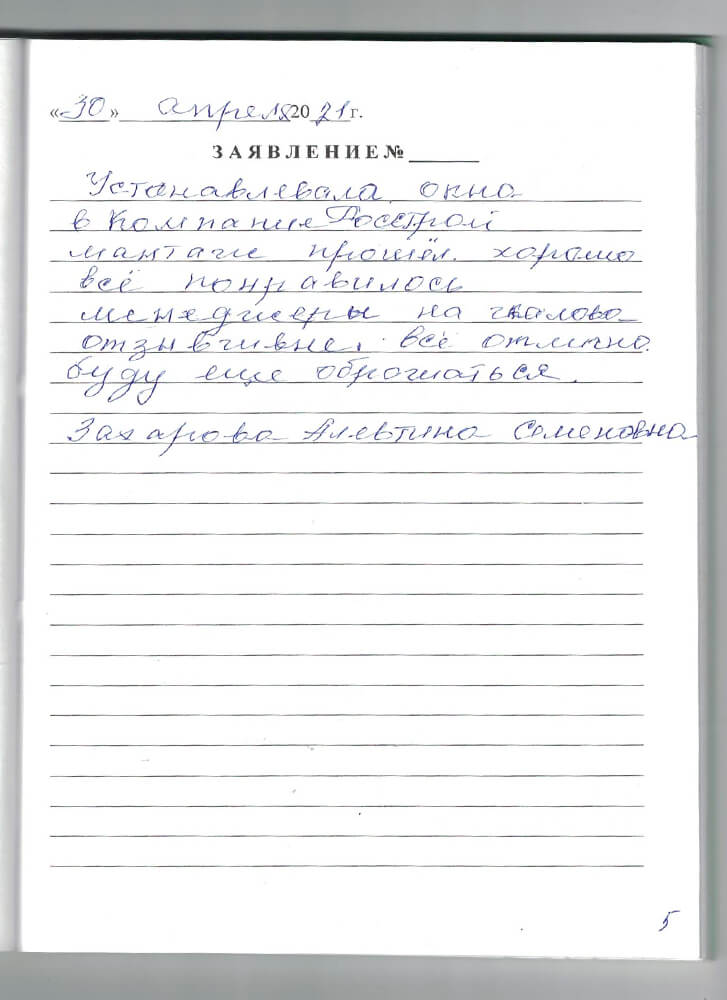 «30» апреля 2021г.
ЗАЯВЛЕНИЕ№
Устанавлевала окна
в Компание Росстрой
мантаж прошёл хорошо
всё понравилось
менеджеры на чкалова
отзывчивые. всё отлично.
буду еще оброщаться.
Захарова Алевтина Семеновна
5